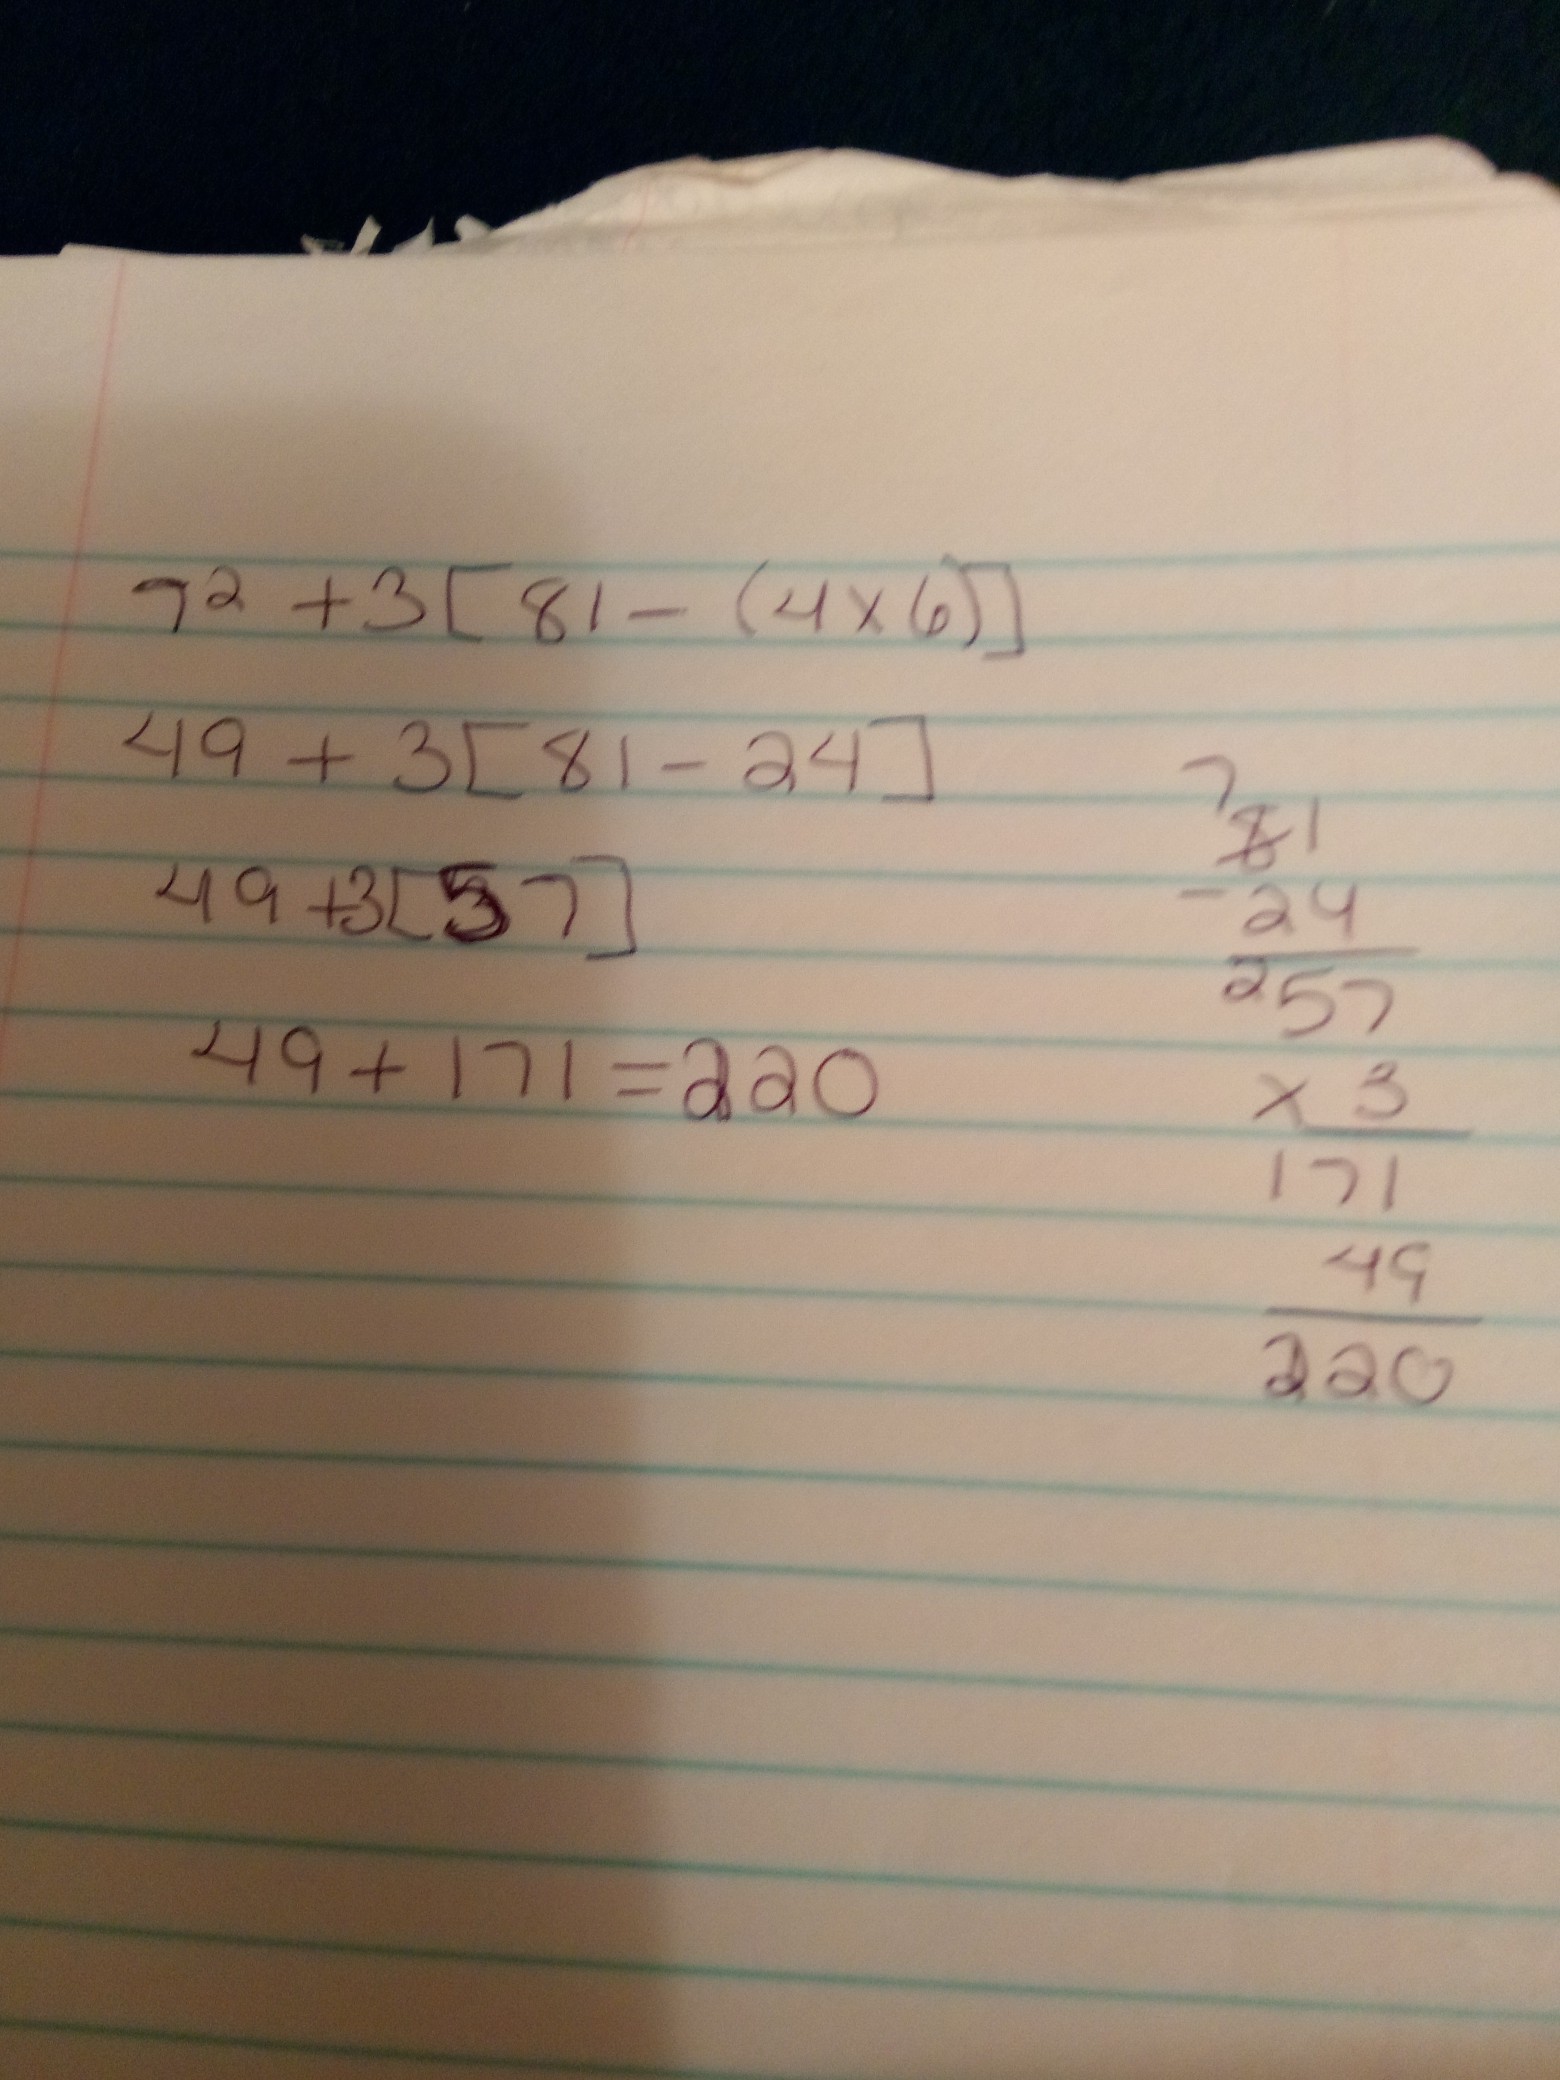 7² + 3[81 - (4 x 6)]
49 + 3[81 - 24]
49 + 3[57]
49 + 171 = 220
7
81
- 24
²57
x 3
171
49
220